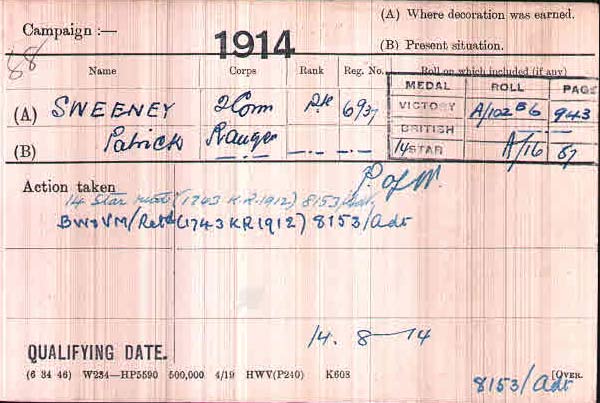 Campaign :—
1914
(A) Where decoration was earned.
(B) Present situation.
88
Name Corps Rank Reg. No. Roll on which included (if any)
MEDAL ROLL PAGE
(A) SWEENEY 2 Conn Pte 6937
VICTORY A/102 B6 943
BRITISH
(B) Patrick Ranger
14 STAR A/16 87
Action taken
P. of W.
14 Star (1743 K.R. 1912) 8153/Adt
BW&VM/Retd (1743 KR 1912) 8153/Adt
14. 8 — 14
QUALIFYING DATE.
(6 34 46) W234—HP5590 500,000 4/19 HWV(P240) K608
[OVER.
8153/Adt